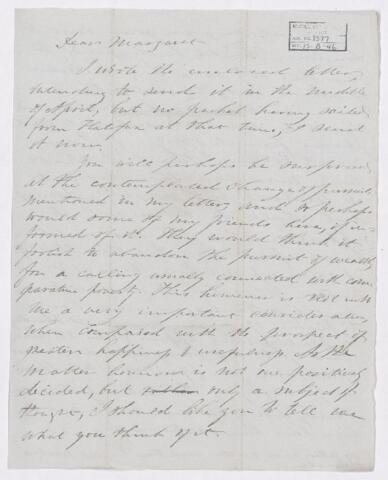 Dear Margaret
I wrote the enclosed letter,
intending to send it in the middle
of April, but no packet having sailed
from Halifax at that time, I send
it now.
You will perhaps be surprised
at the contemplated change of pursuits
mentioned in my letter, and so perhaps
would some of my friends here, if in-
formed of it. They would think it
foolish to abandon the pursuit of wealth
for a calling usually connected with com-
parative poverty. This however is not with
me a very important consideration,
when compared with the prospect of
greater happiness & usefulness. As the
matter however is not one positively
decided, but only a subject of
thought, I should like you to tell me
what you think of it.